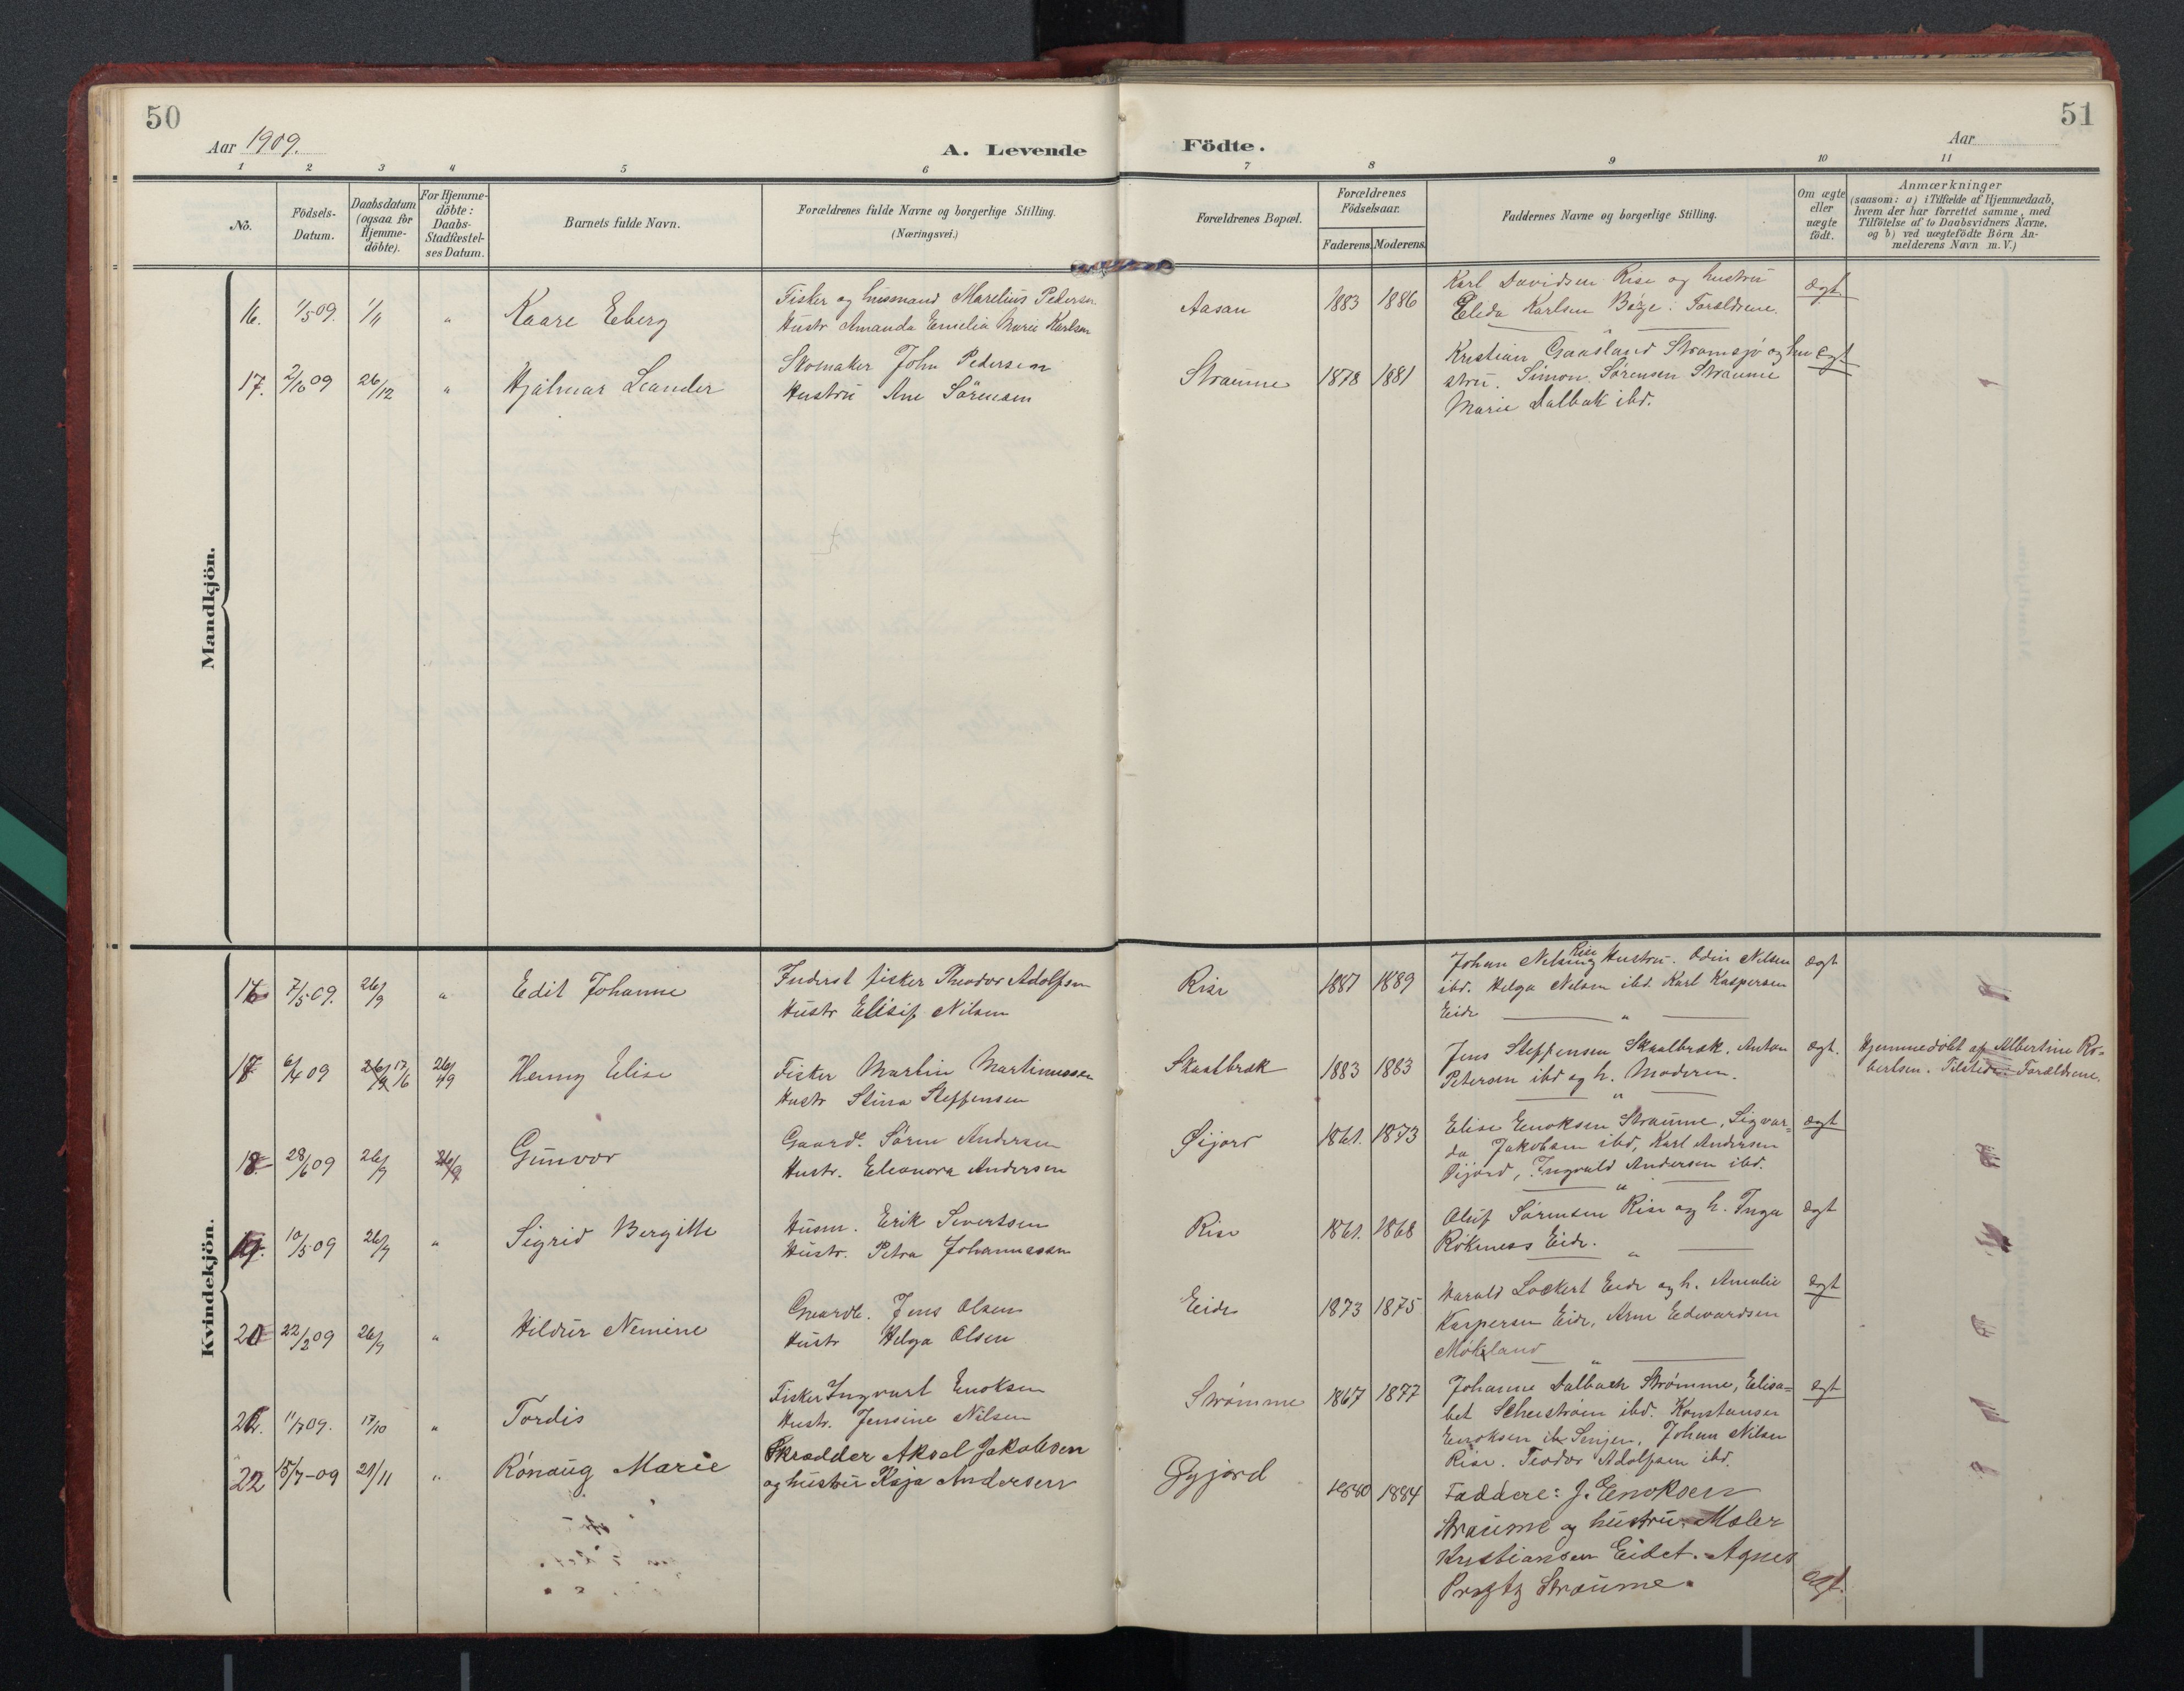 50
Aar 1909.
A. Levende
Födte.
Aar
51
1 2 3 4 5 6 7 8 9 10 11
No.
Födsels-
Datum.
Daabsdatum
(ogsaa for
Hjemme-
döbte).
For Hjemme-
döbte:
Daabs-
Stadfæstel-
ses Datum.
Barnets fulde Navn.
Forældrenes fulde Navne og borgerlige Stilling.
(Næringsvei.)
Forældrenes Bopæl.
Forældrenes
Födselsaar.
Faderens. Moderens.
Faddernes Navne og borgerlige Stilling.
Om ægte
eller
uægte
födt.
Anmærkninger
(saasom: a) i Tilfælde af Hjemmedaab,
hvem der har forrettet samme, med
Tilföielse af to Daabsvidners Navne.
og b) ved uægtefödte Börn An-
melderens Navn m. V.)
Mandkjön.
16. 1/5 09. 1/11 " Kaare Eberg
Fisker og husmand Marelius Pedersen
Hustr Amanda Emelia Marie Karlsen
Aasan 1883 1886
Karl Davidsen Rise og hustru
Elida Karlsen Bøge. Forældrene.
ægt.
17. 2/10 09 26/12 " Hjalmar Leander
Skomaker John Pedersen
Hustru Ane Sörensen
Straume 1878 1881
Kristian Gaasland Stramsjø og hu
stru. Simon Sørensen Straume
Marie Dalbak ibd.
ægt
Kvindekjön.
16 7/5 09. 26/9 " Edit Johanne
Inderst fisker Theodor Adolfsen
Hustr Elisif Nilsen
Rise 1887 1889
Johan Nelsen Rise og Hustru. Odin Nilsen
ibd. Helga Nelsen ibd. Karl Kaspersen
Eide "
ægt
17 6/4 09 17/6 26/9 Henny Elise
Fisker Martin Martinussen
Hustr Stina Steffensen
Skaalbrak 1883 1883
Jens Steffensen Skaalbrak. Anton
Petersen ibd og h. Moderen.
"
ægt.
Hjemmedöbt af Albertine Ro-
bertsen. Tilstede: Forældrene.
18 28/6 09 26/9 Gunvor
Gaardb. Sören Andersen
Hustr. Eleanora Andersen
Øijord 1861. 1873
Elise Enoksen Straume, Sigvar=
da Jakobsen ibd, Karl Andersen
Øijord, Ingvald Andersen ibd.
"
ægt
19. 10/5 09 26/9 " Sigrid Bergitte
Husm. Erik Sivertsen
Hustr. Petra Johannessen
Rise 1861. 1868
Oluf Sørensen Rise og h. Inga
Rökness Eide.
"
ægt
20 22/2 09 26/9 " Hildur Nemine
Gaardb. Jens Olsen
Hustr Helga Olsen
Eide 1873 1875
Harald Lockert Eide og h. Amalie
Kaspersen Eide, Arne Edvardsen
Mökland
"
ægt
21. 11/7 09. 17/10 " Tordis
Fisker Ingvart Enoksen
Hustr. Jensine Nilsen
Strømme 1867 1877
Johanne Dalbach Strømme, Elisa=
bet Scheistrøm ibd. Konstanse
Enoksen Senjen, Johan Nilsen
Rise. Teodor Adolfsen ibd.
ægt
22 15/7-09 21/11 " Rónaug Marie
Skrædder Aksel Jakobsen
og hustru Kaja Andersen
Øyjord 1880 1884
Faddere: J. Enoksen
Straume og hustru. Maler
Kristiansen Eidet. Agnes
Straume.
ægt.